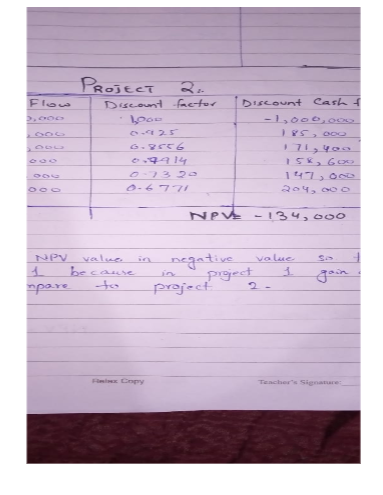 PROJECT 2.
Flow Discount factor Discount Cash f
0,000 1,000 -1,000,000
,000 0.925 185,000
,000 0.8556 171,400
000 0.7914 158,600
000 0.7320 147,000
000 0.6771 204,000
NPV= -134,000
NPV value in negative value so t
1 because in project 1 gain
mpare to project 2.
Relax Copy Teacher's Signature